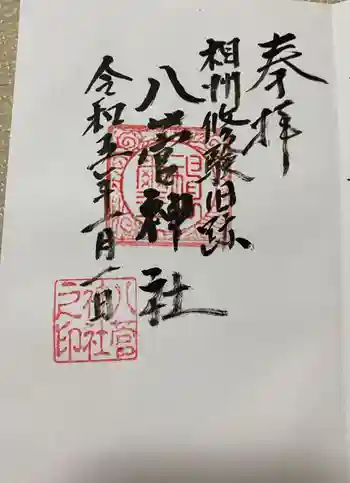 奉拝
相州修験旧跡
八菅神社
令和五年一月一日
八菅
神社
之印